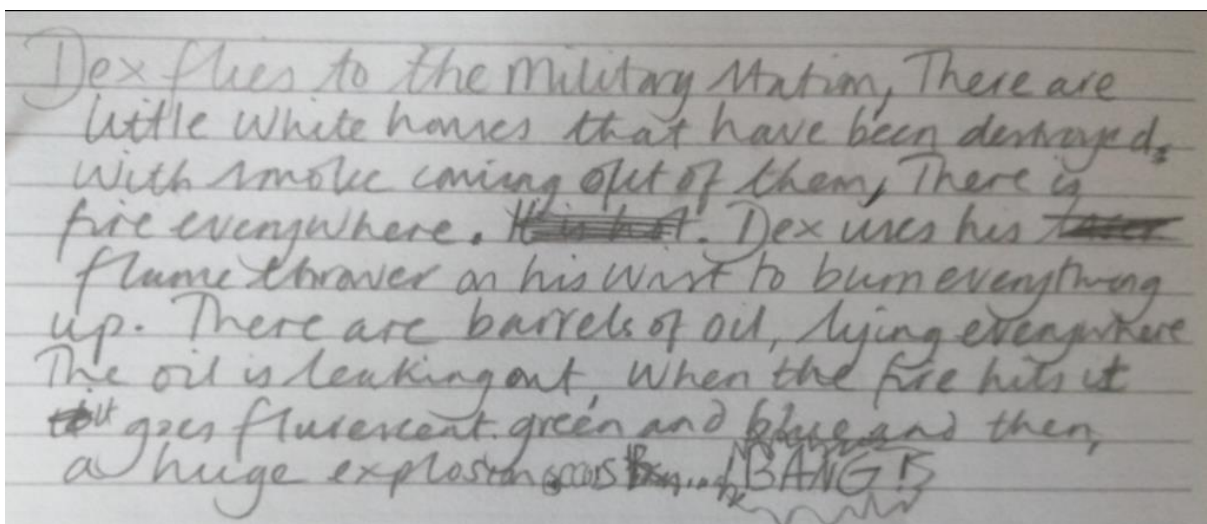 Dex flies to the Military Station, There are
little white houses that have been destroyed.
With smoke coming out of them, There is
fire everywhere. It is hot. Dex uses his
flame thrower on his wrist to burn everything
up. There are barrels of oil, lying everywhere
The oil is leaking out, When the fire hits it
it goes flurescent green and blue and then,
a huge explosion occurs .... BANG!!